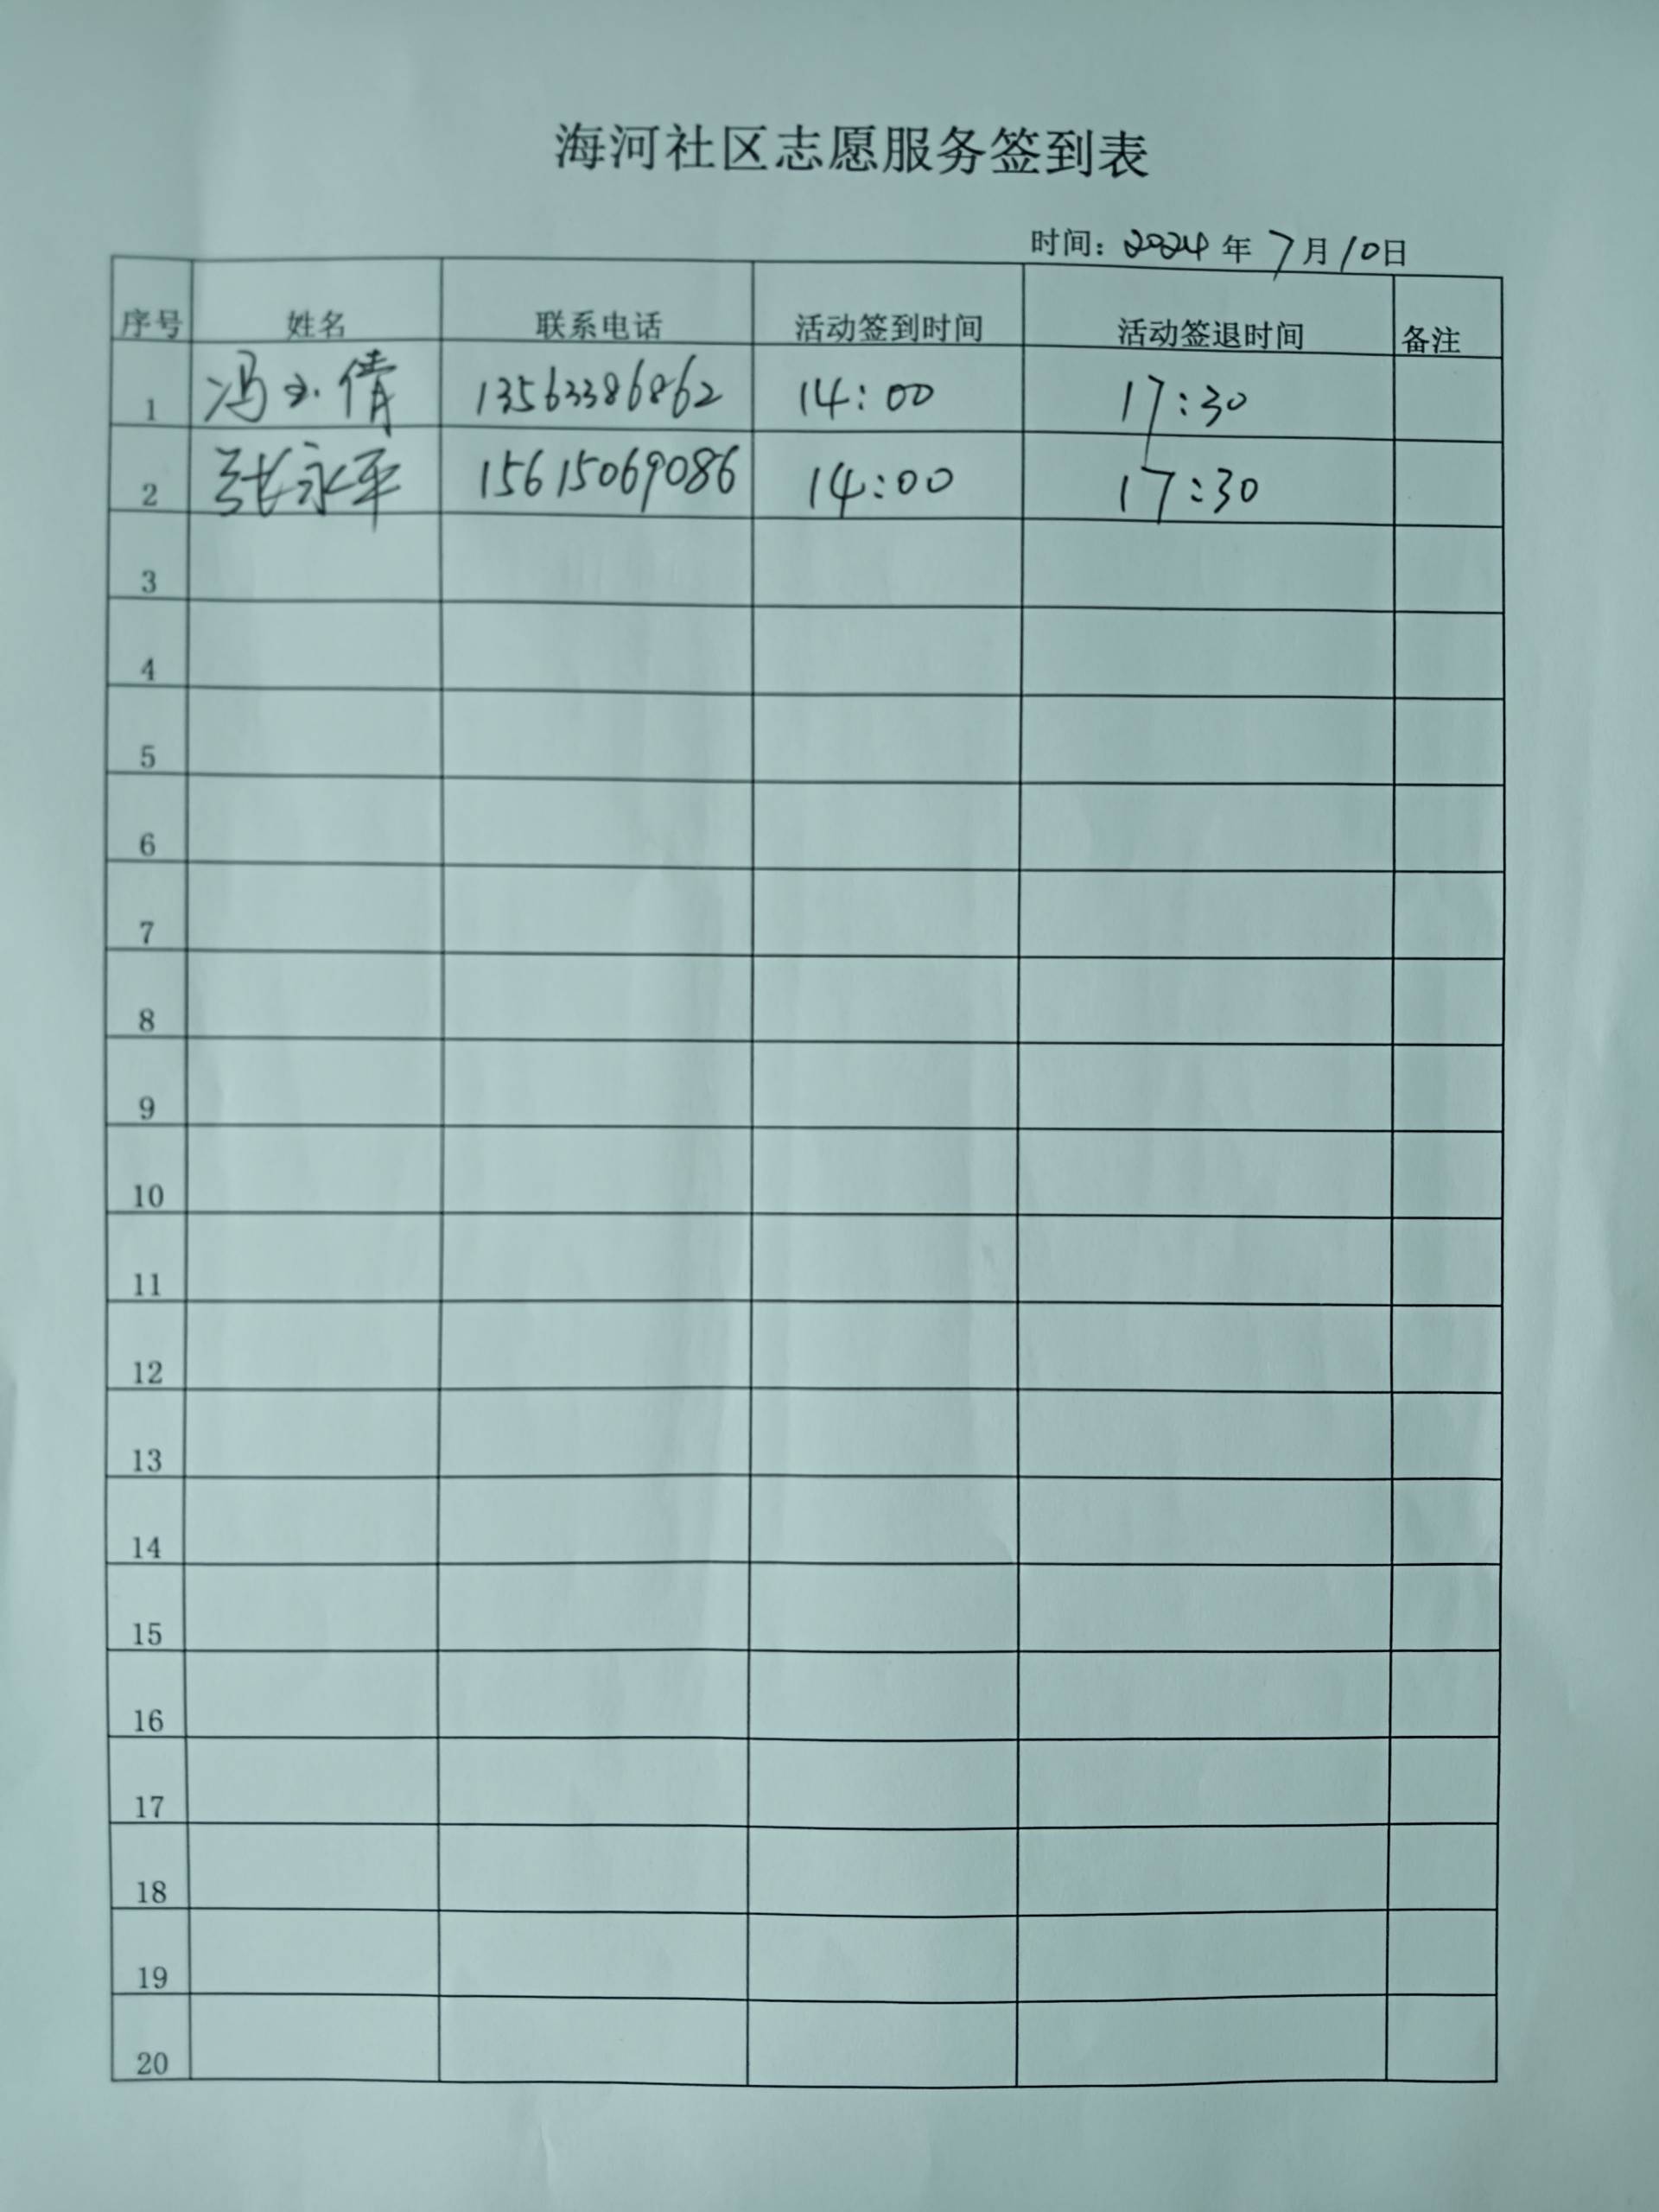 海河社区志愿服务签到表
时间：2024年7月10日
序号 姓名 联系电话 活动签到时间 活动签退时间 备注
1 冯玉倩 13563386862 14:00 17:30
2 张永平 15615069086 14:00 17:30
3
4
5
6
7
8
9
10
11
12
13
14
15
16
17
18
19
20